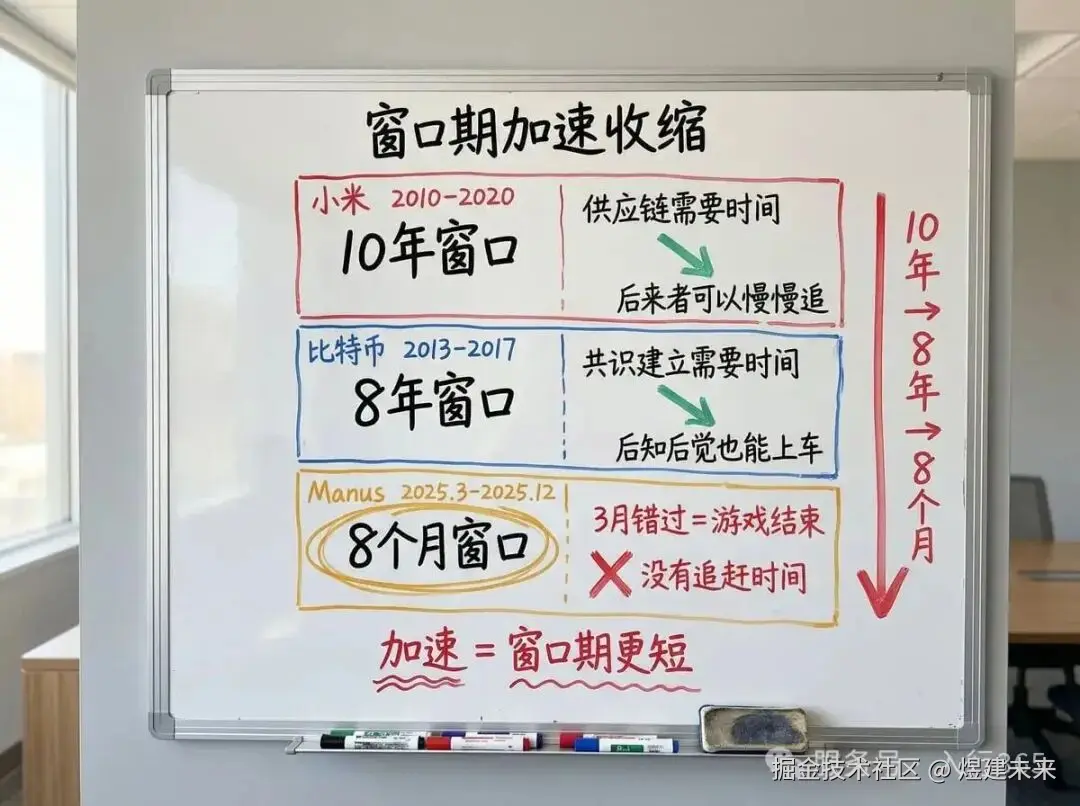 窗口期加速收缩
小米 2010-2020
10年窗口
供应链需要时间
后来者可以慢慢追
比特币 2013-2017
8年窗口
共识建立需要时间
后知后觉也能上车
Manus 2025.3-2025.12
8个月窗口
3月错过=游戏结束
没有追赶时间
10年→8年→8个月
加速=窗口期更短
掘金技术社区 @ 煜建未来